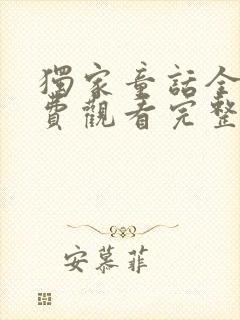 獨家童話全
費觀看完整
安慕菲